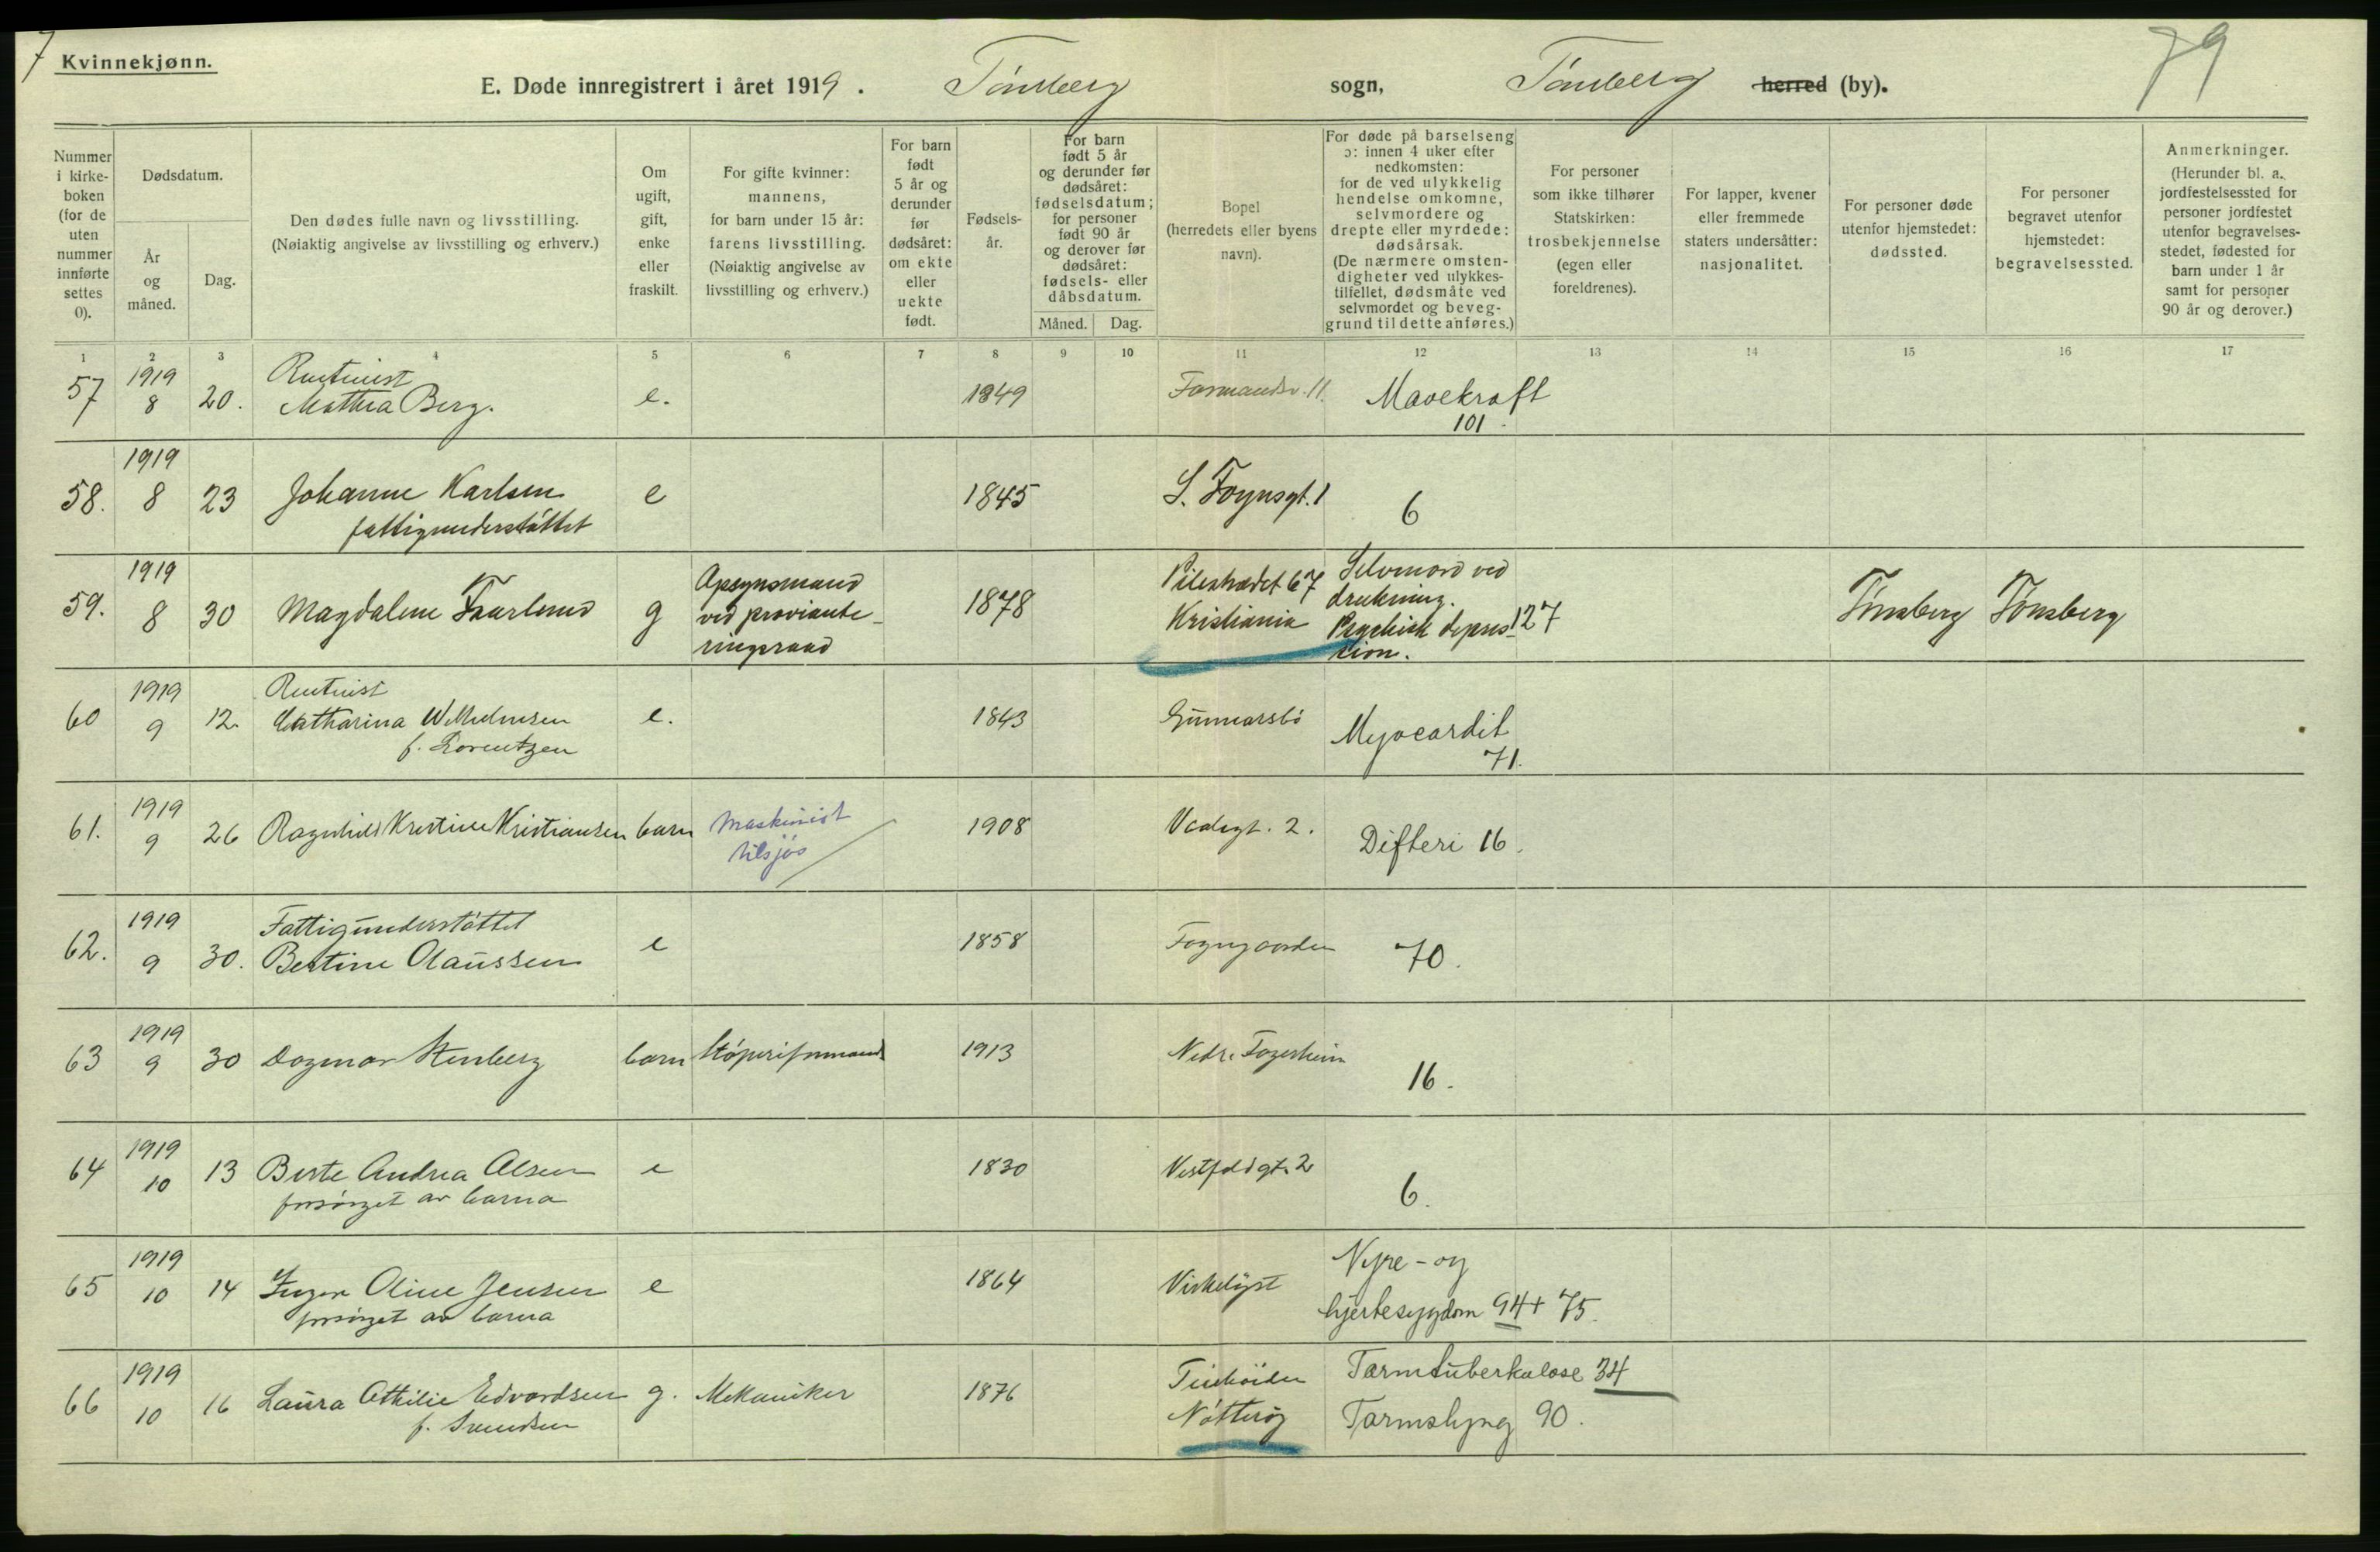 7
Kvinnekjønn.
79
E. Døde innregistrert i året 1919. Tønsberg sogn, Tønsberg herred (by).
Nummer i kirke-boken (for de uten nummer innførte settes 0).
Dødsdatum.
År og måned.
Dag.
Den dødes fulle navn og livsstilling.
(Nøiaktig angivelse av livsstilling og erhverv.)
Om ugift, gift, enke eller fraskilt.
For gifte kvinner: mannens, for barn under 15 år: farens livsstilling. (Nøiaktig angivelse av livsstilling og erhverv.)
For barn født 5 år og derunder før dødsåret: om ekte eller uekte født.
Fødsels-år.
For barn født 5 år og derunder før dødsåret: fødselsdatum; for personer født 90 år og derover før dødsåret: fødsels- eller dåbsdatum.
Måned. Dag.
Bopel (herredets eller byens navn).
For døde på barselseng ɔ: innen 4 uker efter nedkomsten: for de ved ulykkelig hendelse omkomne, selvmordere og drepte eller myrdede: dødsårsak. (De nærmere omsten-digheter ved ulykkes-tilfellet, dødsmåte ved selvmordet og beveg-grund til dette anføres.)
For personer som ikke tilhører Statskirken: trosbekjennelse (egen eller foreldrenes).
For lapper, kvener eller fremmede staters undersåtter: nasjonalitet.
For personer døde utenfor hjemstedet: dødssted.
For personer begravet utenfor hjemstedet: begravelsessted.
Anmerkninger. (Herunder bl. a. jordfestelsessted for personer jordfestet utenfor begravelses-stedet, fødested for barn under 1 år samt for personer 90 år og derover.)
1 2 3 4 5 6 7 8 9 10 11 12 13 14 15 16 17
57 1919 8 20. Rentenist
Mathea Berg. e. 1849 Farmandsv. 11. Mavekraft
101.
58. 1919 8 23 Johanne Karlsen
fattigunderstøttet e 1845 S. Foynsgt. 1 6
59. 1919 8 30 Magdalene Faurlund g Opsynsmand
ved proviante-
ringsraad 1878 Pilestrædet 67
Kristiania Selvmord ved
drukning.
Psychisk depres-
sion. 127 Tønsberg Tønsberg
60 1919 9 12. Rentenist
Catharina Wilhelmsen
f. Lorentzen e. 1843 Gunnarsbö Myocardit
71.
61. 1919 9 26 Ragnhild Kristine Kristiansen barn Maskinist
tilsjøs 1908 2. Difteri 16.
62. 1919 9 30. Fattigunderstøttet
Bertine Olaussen e 1858 Foyngaarden 70.
63 1919 9 30 Dagmar Stenberg barn 1913 Nedre Fagerheim 16.
64 1919 10 13 Berte Andrea Olsen
forsørget av barna e 1830 Vestfoldgt. 2 6.
65 1919 10 14 Inger Oline Jensen
forsørget av barna e 1864 Virkelyst Nyre- og
hjertesygdom 94 + 75.
66 1919 10 16 Laura Othilie Edvardsen
f. Svendsen g. Mekaniker 1876 Nøtterøy Tarmtuberkulose 34
Tarmslyng 90.